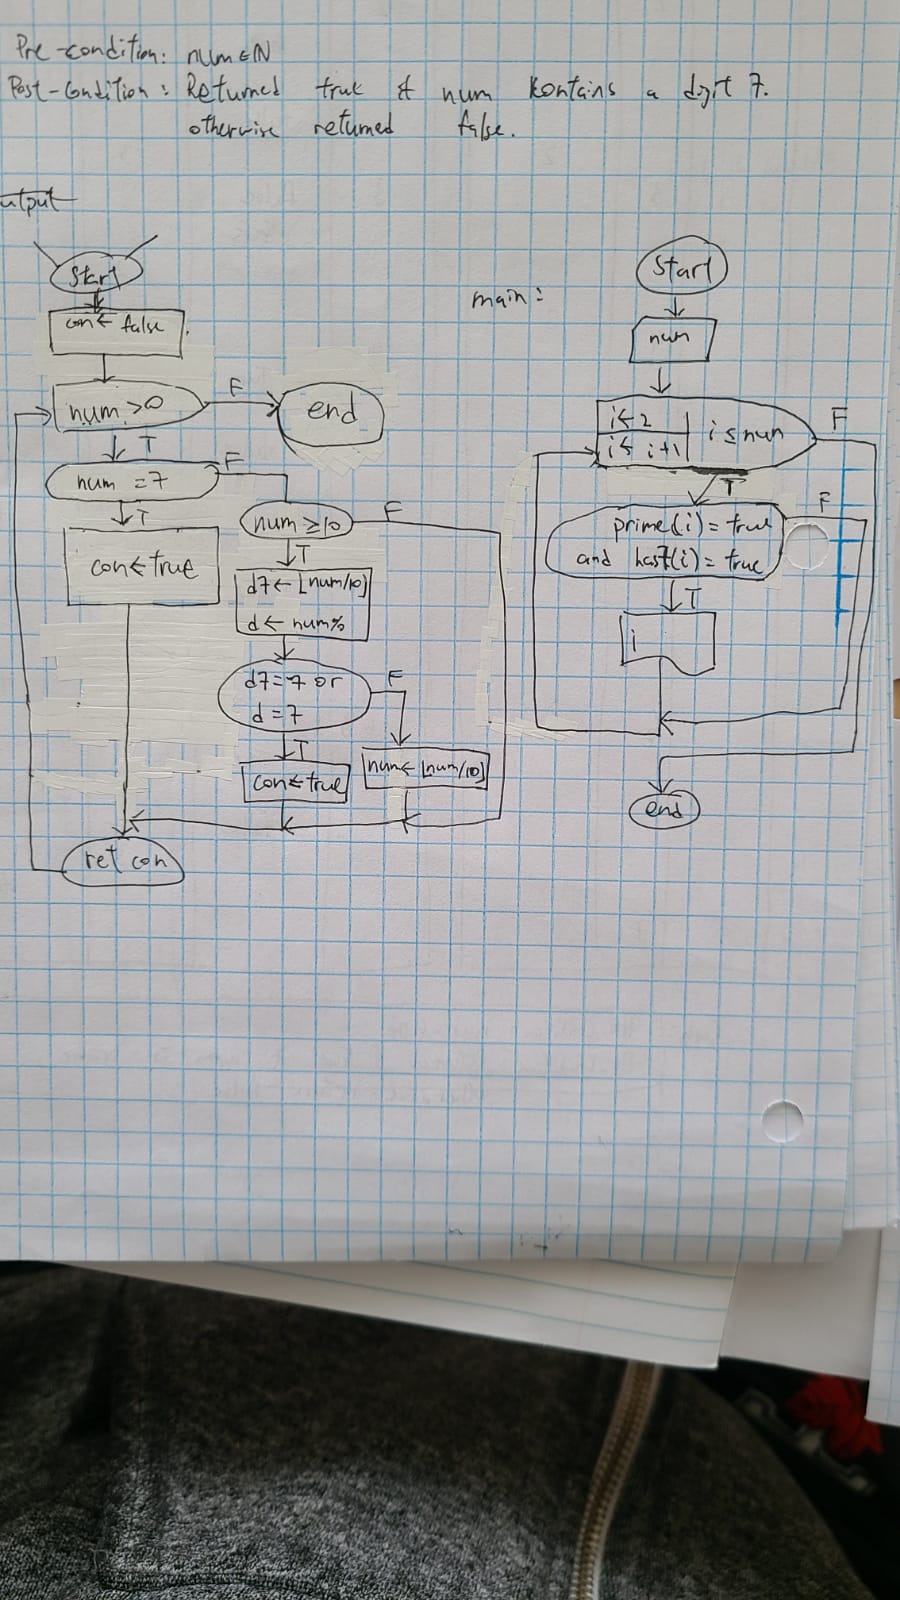 Pre-condition: num ∈ N
Post-Condition: Returned true if num kontains a digit 7.
otherwise returned false.
utput
start
con ← false
num > 0
F
end
T
num = 7
F
T
con ← true
num ≥ 10
F
T
d7 ← ⌊num/10⌋
d ← num%
d7 = 7 or
d = 7
F
T
con ← true
num ← ⌊num/10⌋
ret con
main:
start
num
i ← 2
i ← i+1
i ≤ num
F
T
prime(i) = true
and has7(i) = true
F
T
i
end